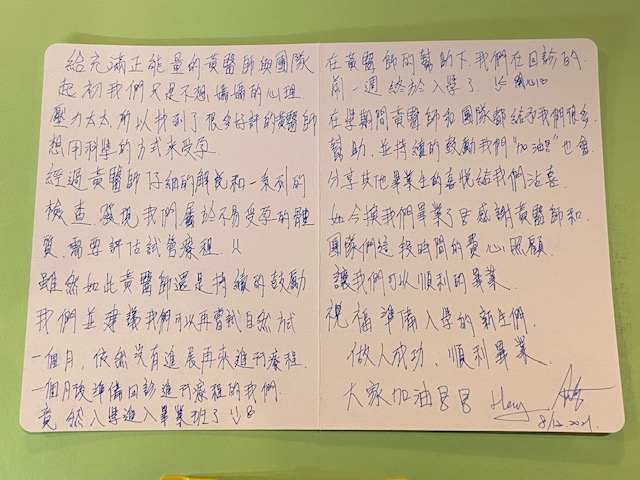 給充滿正能量的黃醫師與團隊
起初我們只是不想媽媽的心理
壓力太大,所以找到了很多好評的黃醫師
想用科學的方式來受孕.
經過黃醫師仔細的解說和一系列的
檢查.發現我們屬於不易受孕的體
質.需要評估試管療程.
雖然如此黃醫師還是持續的鼓勵
我們並建議我們可以再嘗試自然試
一個月,依然沒有進展再來進行療程.
一個月後準備回診進行療程的我們.
竟然入學進入畢業班了
在黃醫師的幫助下.我們在回診的
前一週終於入學了. 開心
在學期間黃醫師和團隊都給予我們很多
幫助.並持續的鼓勵我們"加油"也會
分享其他畢業生的喜悅給我們沾喜.
如今換我們畢業了 感謝黃醫師和
團隊們這段時間的費心照顧.
讓我們可以順利的畢業.
祝福準備入學的新生們.
做人成功.順利畢業.
大家加油
8/12.2021.